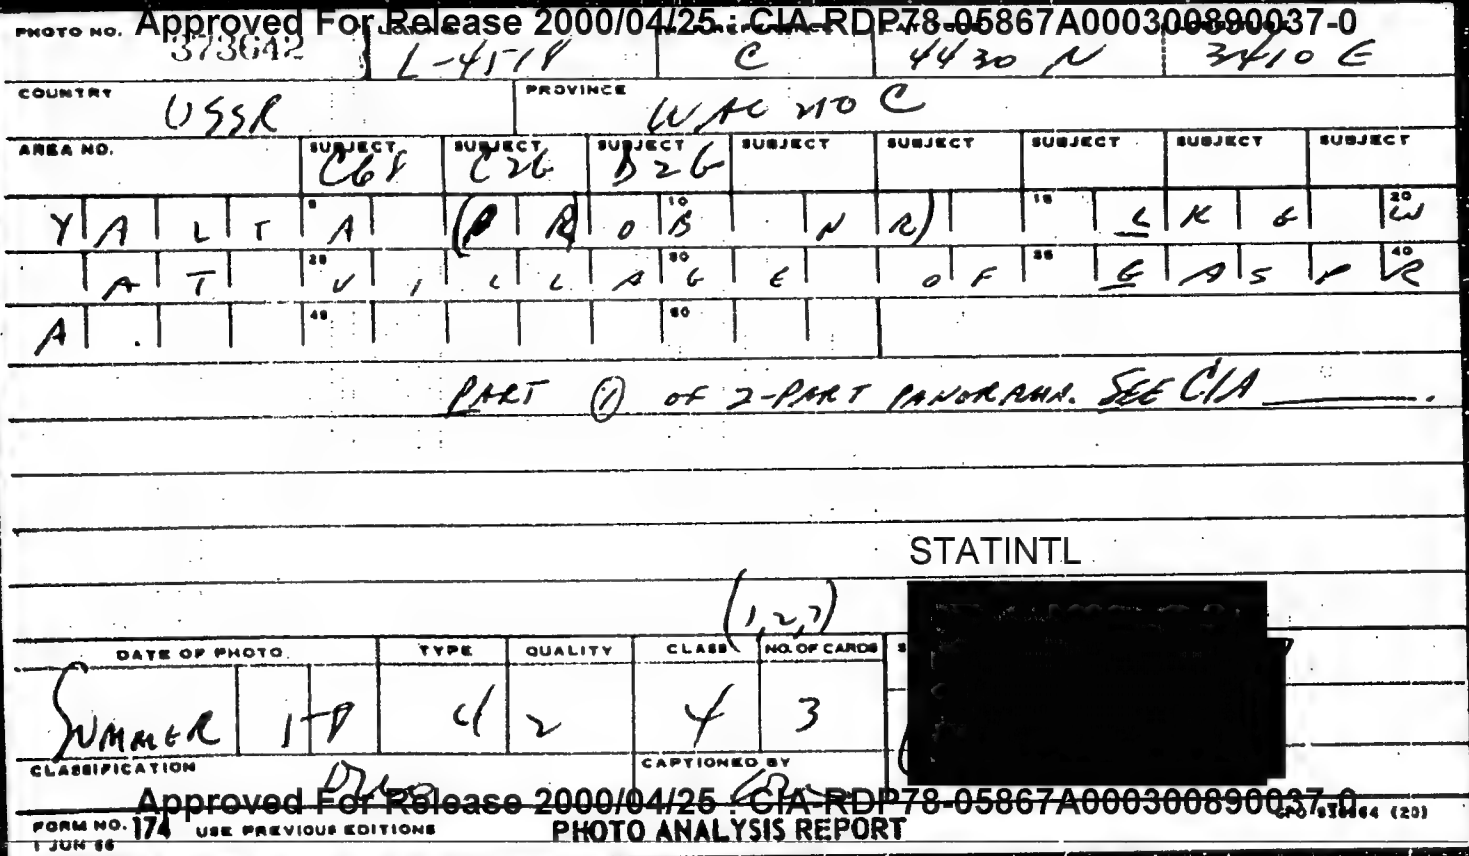 Approved For Release 2000/04/25 : CIA-RDP78-05867A000300890037-0
PHOTO NO. 373642 L-4518 C 4430 N 3410 E
COUNTRY USSR PROVINCE WAC 210 C
AREA NO. SUBJECT C68 SUBJECT C26 SUBJECT B26 SUBJECT SUBJECT SUBJECT SUBJECT SUBJECT
YALTA (PROB NR) LKG W
AT VILLAGE OF GASPR
A.
PART 1 OF 2-PART PANORAMA. SEE CIA ______.
STATINTL
(1,2,3)
DATE OF PHOTO TYPE QUALITY CLASS NO. OF CARDS
SUMMER 4 2 4 3
CLASSIFICATION CAPTIONED BY
Approved For Release 2000/04/25 : CIA-RDP78-05867A000300890037-0
FORM NO. 174 USE PREVIOUS EDITIONS PHOTO ANALYSIS REPORT (20)
1 JUN 66